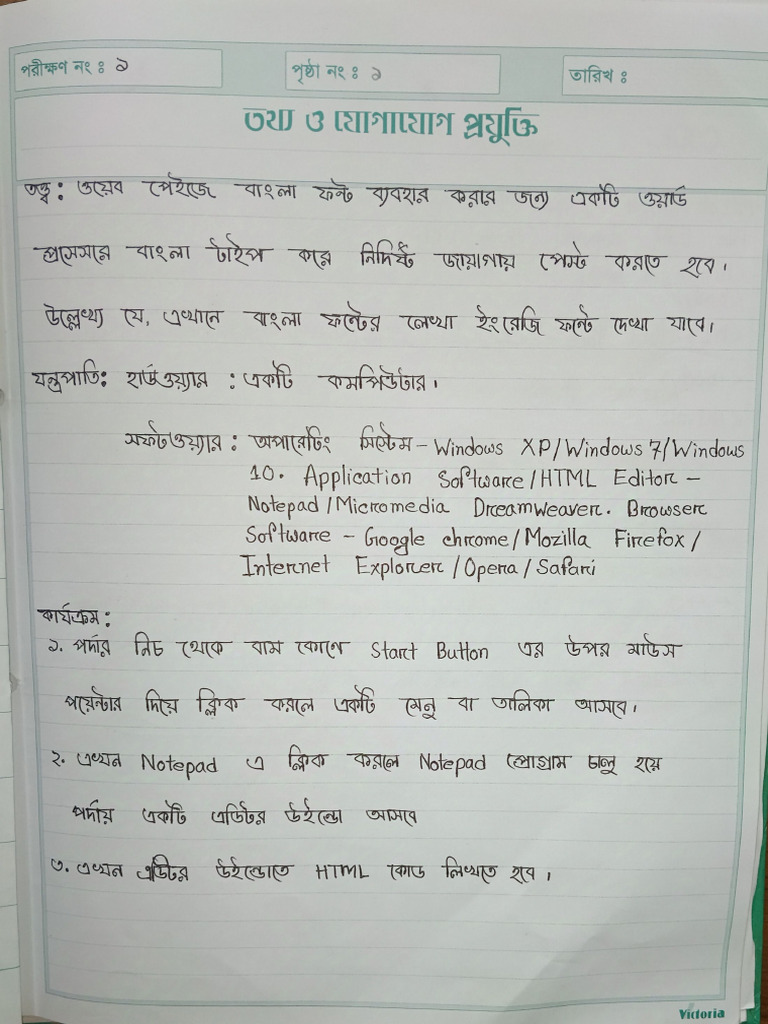 পরীক্ষণ নং : ১ পৃষ্ঠা নং : ১ তারিখ :
তথ্য ও যোগাযোগ প্রযুক্তি
তত্ত্ব : ওয়েব পেইজে বাংলা ফন্ট ব্যবহার করার জন্য একটি ওয়ার্ড
প্রসেসরে বাংলা টাইপ করে নির্দিষ্ট জায়াগায় পেস্ট করতে হবে।
উল্লেখ্য যে, এখানে বাংলা ফন্টের লেখা ইংরেজি ফন্টে দেখা যাবে।
যন্ত্রপাতি: হার্ডওয়্যার : একটি কমপিউটার।
সফটওয়্যার : অপারেটিং সিস্টেম – Windows XP/Windows 7/Windows
10. Application Software/HTML Editor –
Notepad/Micromedia Dreamweaver. Browser
Software – Google chrome/Mozilla Firefox/
Internet Explorer/Opera/Safari
কার্যক্রম :
১. পর্দার নিচ থেকে বাম কোণে Start Button এর উপর মাউস
পয়েন্টার দিয়ে ক্লিক করলে একটি মেনু বা তালিকা আসবে।
২. এখন Notepad এ ক্লিক করলে Notepad প্রোগ্রাম চালু হয়ে
পর্দায় একটি এডিটর উইন্ডো আসবে
৩. এখন এডিটর উইন্ডোতে HTML কোড লিখতে হবে।
Victoria